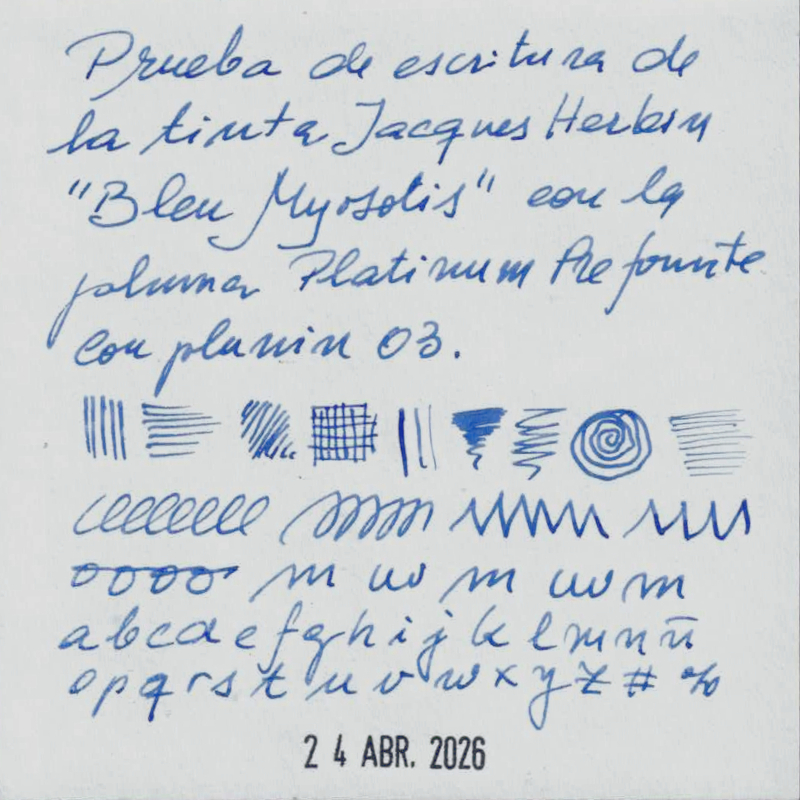 Prueba de escritura de
la tinta Jacques Herbin
"Bleu Myosotis" con la
pluma Platinum Prefounte
con plumín 03.
m uv m uv m
a b c d e f g h i j k l m n ñ
o p q r s t u v w x y z # %
2 4 ABR. 2026